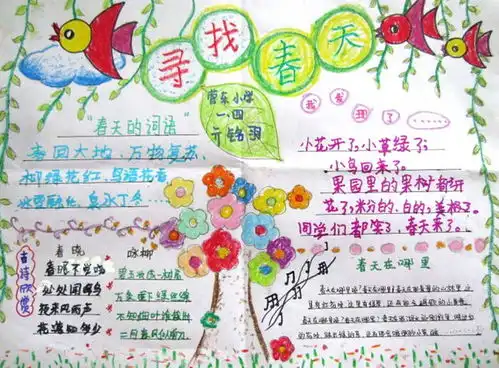 寻找春天
营东小学
一.四
"春天的词语"
春回大地、万物复苏、
柳绿花红、鸟语花香
冰雪融化、泉水丁冬……
我发现了……
小花开了,小草绿了,
小鸟回来了。
果园里的果树都开
花了,粉的、白的,美极了。
同学们都笑了,春天来了。
古诗欣赏
春晓
春眠不觉晓
处处闻啼鸟
夜来风雨声
花落知多少
咏柳
碧玉妆成一树高
万条垂下绿丝绦
不知细叶谁裁出
二月春风似剪刀
春天在哪里